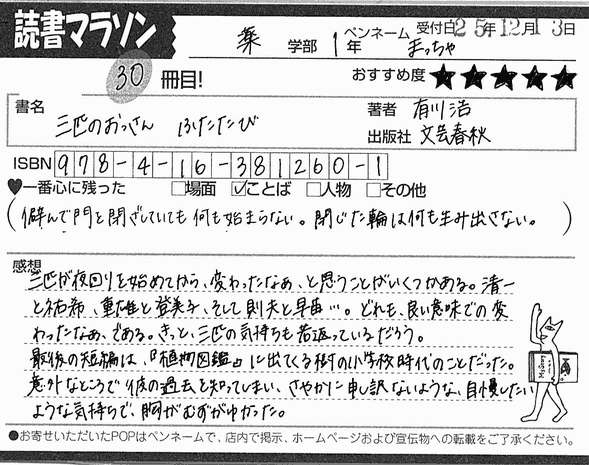 読書マラソン
薬 学部 1年 ペンネーム まっちゃ 受付日25年12月13日
30 冊目! おすすめ度 ★★★★★
書名 三匹のおっさん ふたたび
著者 有川浩
出版社 文芸春秋
ISBN 978-4-16-381260-1
♥一番心に残った □場面 ☑ことば □人物 □その他
(僻んで門を閉ざしていても何も始まらない。閉じた輪は何も生み出さない。)
感想
三匹が夜回りを始めてから、変わったなぁ、と思うことがいくつかある。清一
と祐希、重雄と登美子、そして則夫と早苗…。どれも、良い意味での変
わったなぁ、である。きっと、三匹の気持ちも若返っているだろう。
最後の短編は、『植物図鑑』に出てくる樹の小学校時代のことだった。
意外なところで彼の過去を知ってしまい、ささやかに申し訳ないような、自慢したい
ような気持ちで、胸がむずがゆかった。
Mystery
●お寄せいただいたPOPはペンネームで、店内で掲示、ホームページおよび宣伝物への転載をご了承ください。